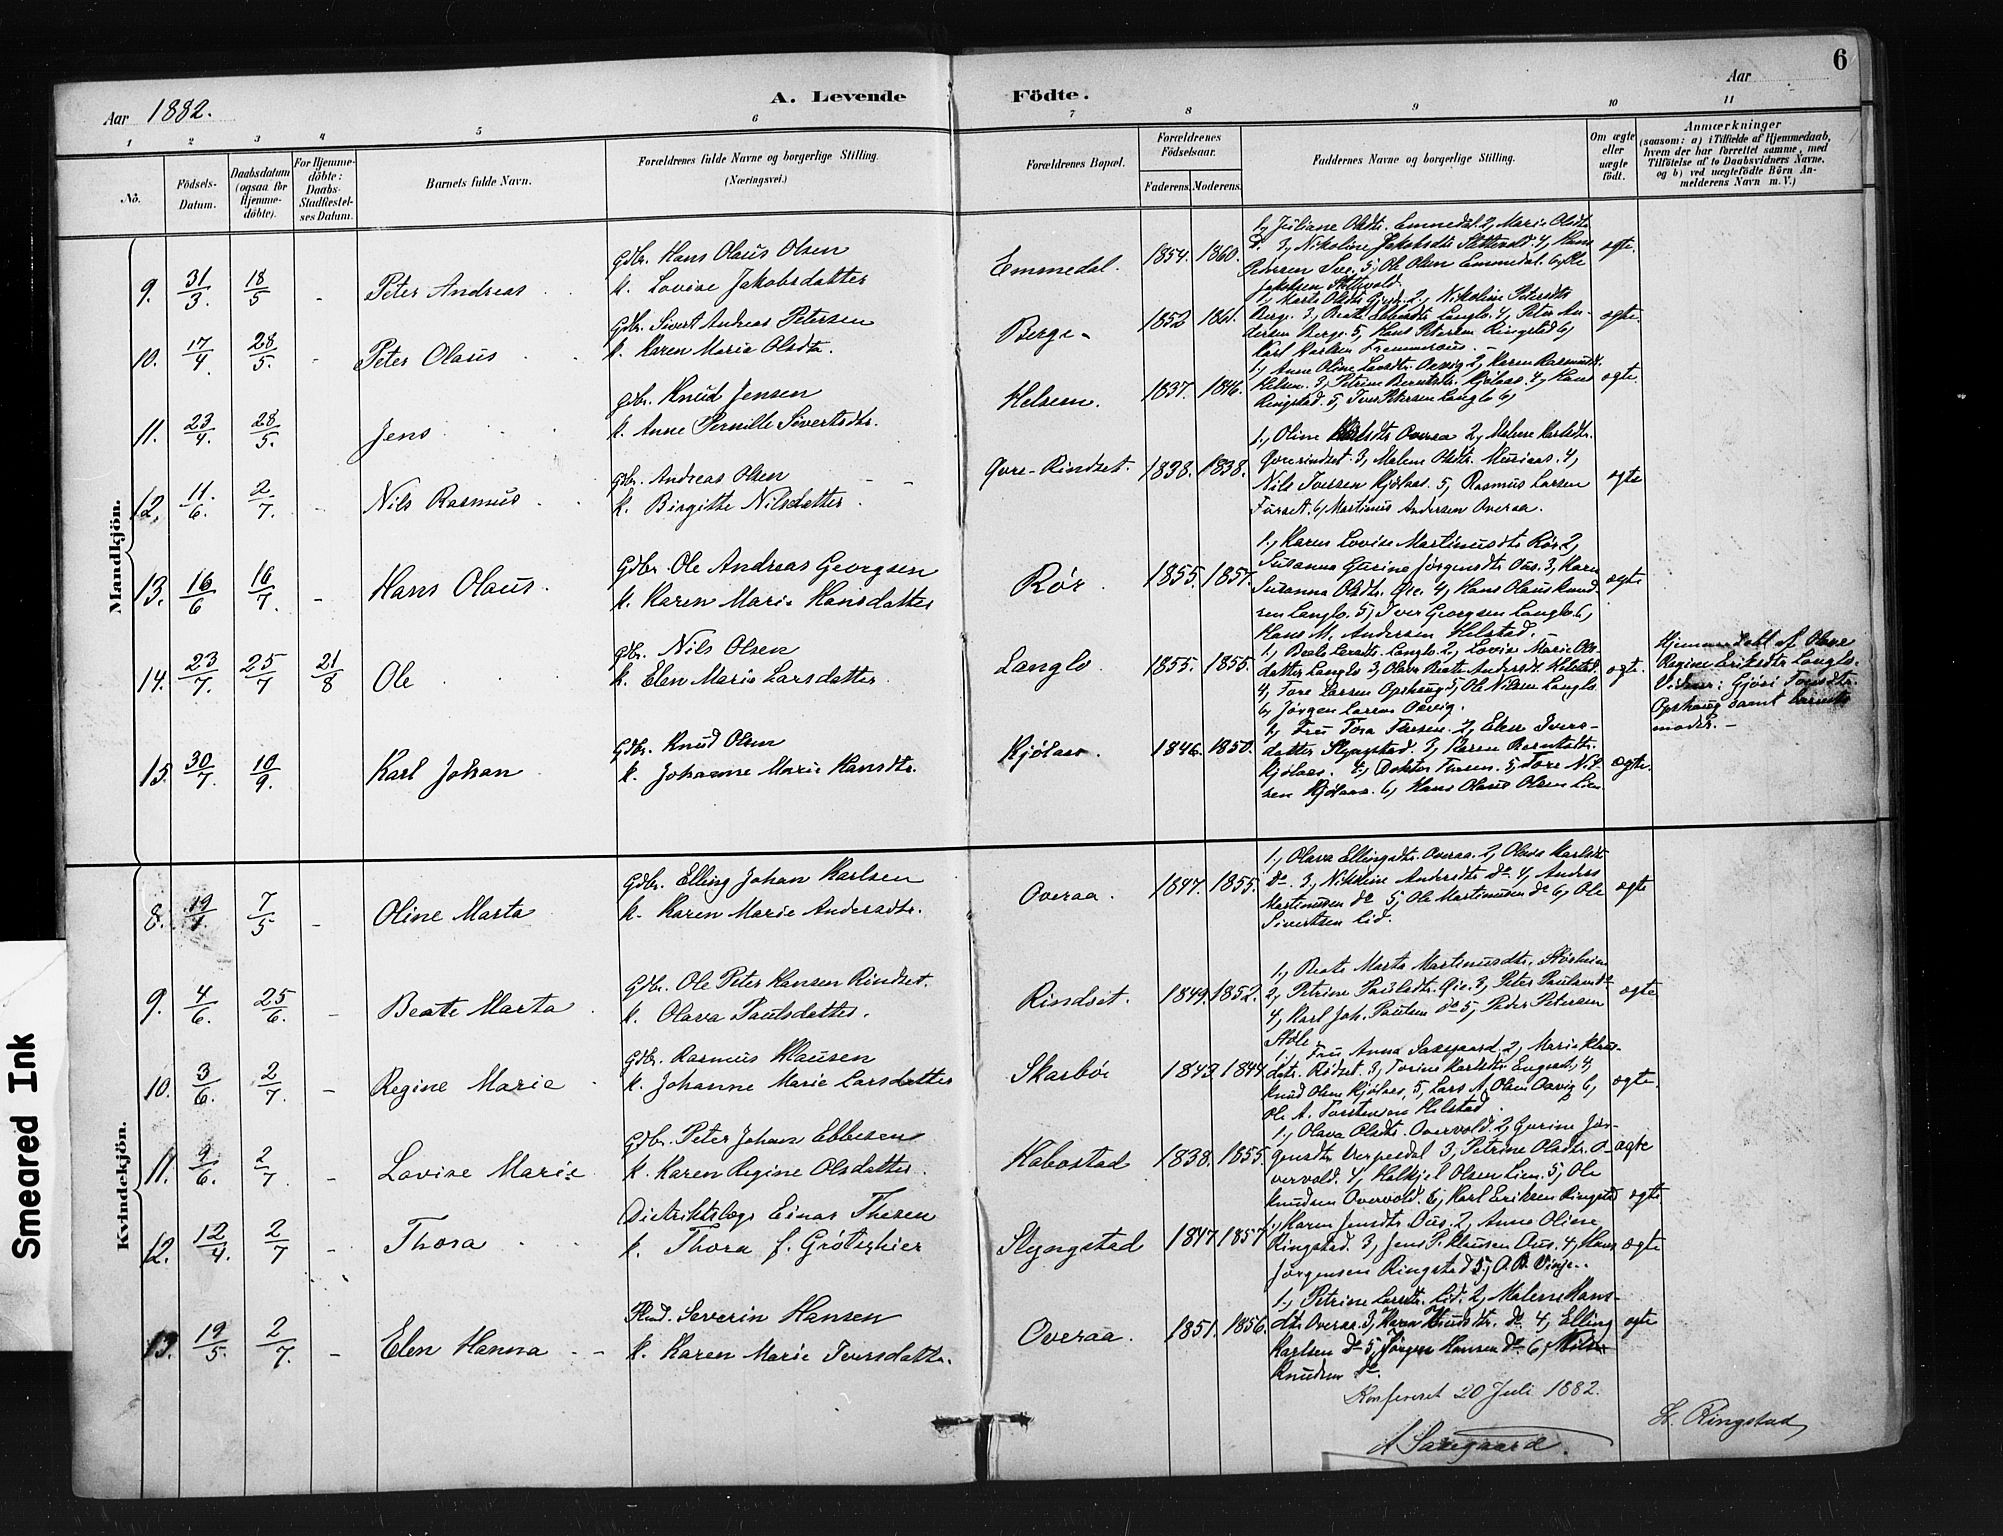 6
Aar 1882.
A. Levende Födte.
Aar
1 2 3 4 5 6 7 8 9 10 11
Nö.
Födsels-Datum.
Daabsdatum (ogsaa for Hjemmedöbte).
For Hjemmedöbte: Daabs-Stadfæstelses Datum.
Barnets fulde Navn.
Forældrenes fulde Navne og borgerlige Stilling. (Næringsvei.)
Forældrenes Bopæl.
Forældrenes Födselsaar.
Faderens. Moderens.
Faddernes Navne og borgerlige Stilling.
Om ægte eller uægte födt.
Anmærkninger
(saasom: a) i Tilfælde af Hjemmedaab, hvem der har forrettet samme, med Tilföielse af to Daabsvidners Navne, og b) ved uægtefödte Börn Anmelderens Navn m. V.)
Mandkjön.
9. 31/3. 18/5 - Peter Andreas Gdbr. Hans Olaus Olsen
k. Lovise Jakobsdatter Emmedal. 1854. 1860. ægte.
1, Juliane Olsdtr. Emmedal 2, Marie Olsdtr
Do 3, Nikoline Jakobsdtr 4, Hans
Petersen 5, Ole Olsen Emmedal. 6, Ole
Jakobsen
10. 17/4. 28/5. - Peter Olaus Gdbr. Sivert Andreas Petersen
k. Karen Marie Olsdtr. Berge 1852 1861. ægte.
1, Marte Olsdtr 2, Nikoline Petersdtr
Berge. 3, Beate Langlo. 4, Peter An-
dersen Berge. 5, Hans Petersen Ringstad 6,
Karl Karlsen
11. 23/4. 28/5. Jens Gdbr. Knud Jensen
k. Anne Pernille Sivertsdtr. Helsem. 1837. 1846. ægte.
1, Anne Oline Larsdtr. Aarvig 2, Karen Rasmusdt.
Helsem. 3, Petrine Berntsdtr. Kjölaas. 4, Hans
Ringstad. 5, Iver Petersen Langlo 6,
12. 11/6. 2/7. - Nils Rasmus Gdbr. Andreas Olsen
k. Birgitte Nilsdatter Qvre-Rindset. 1838. 1838. ægte
1, Oline Overaa 2, Malene Karlsdtr.
Qvrerindset. 3, Malene Olsdtr. 4,
Nils Iversen Kjölaas. 5, Rasmus Larsen
Furset. 6, Martinus Andersen Overaa.
13. 16/6 16/7. - Hans Olaus. Gdbr. Ole Andreas Georgsen
k. Karen Marie Hansdatter Rör. 1855. 1857. ægte
1, Karen Lovise Martinusdtr Rör 2,
Susanna Gurine Jørgensdtr Aus. 3, Karen
Susanna Olsdtr. Øie. 4, Hans Olaus Knud-
sen Langlo. 5, Iver Georgsen Langlo 6,
Hans M. Andersen Helstad.
14. 23/7. 25/7 21/8 Ole Gdbr. Nils Olsen
k. Elen Marie Larsdatter. Langlo. 1855. 1855. ægte.
1, Beate Larsdtr. Langlo. 2, Lovise Marie Ols-
datter Langlo 3, Beate Andersdt. Helstad.
4, Tore Larsen Opshaug 5, Ole Nilsen Langlo
6, Jörgen Larsen Aarvig.
Hjemmedöbt af
Regine Eriksdtr Langlo.
Vidner: Gjöri
Opshaug samt barnets
moder. -
15. 30/7. 10/9. Karl Johan Gdbr. Knud Olsen
k. Johanne Marie Hansdtr. Kjölaas. 1846. 1850. ægte.
1, Fru Tora Thesen. 2, Elen Ivers-
datter Slyngstad. 3, Karen Berntsdtr.
Kjölaas. 4, Doktor Thesen. 5, Tore Nil-
sen Kjölaas. 6, Hans Olaus Olsen Lien
Kvindekjön.
8. 19/4. 7/5 - Oline Marta Gdbr. Elling Johan Karlsen
k. Karen Marie Andersdtr. Overaa. 1847. 1855. ægte
1, Olava Ellingsdtr. Overaa. 2, Olava Karlsdtr
Do. 3, Nikoline Andersdtr Do 4, Anders
Martinusen Do 5, Ole Martinusen Do 6, Ole
Sivertsen Lid.
9. 4/6. 25/6. - Beate Marta Gdbr. Ole Peter Hansen Rindset.
k. Olava Paulsdatter. Rindset. 1849. 1852. ægte
1, Beate Marta Martinusdtr.
2, Petrine Paulsdtr. Øie. 3, Peter
4, Karl Joh. Paulsen Do 5, Peder Petersen
Støle
10. 3/6. 2/7. - Regine Marie Gdbr. Rasmus Klausen
k. Johanne Marie Larsdatter Skarbö. 1843. 1844. ægte.
1, Fru Anna Saxegaard. 2, Marie Klaus-
dtr. Rödset. 3, Karlsdtr Engset. 4,
Knud Olsen Kjölaas, 5, Lars A. Olsen Aarvig 6,
Ole A. Torstensen Helstad.
11. 9/6. 2/7. - Lovise Marie Gdbr. Peter Johan Ebbesen
k. Karen Regine Olsdatter. Habostad 1838. 1855. ægte
1, Olava Olsdtr. Overvold. 2, Gurine Jör-
gensdtr Verpesdal 3, Petrine Olsdtr. O-
vervold. 4, Halkjel Olsen Lien. 5, Ole
Knudsen Overvold. 6, Karl Eriksen Ringstad ægte
12. 12/4. 2/7 - Thora Distriktslæge Einar Thesen
k. Thora f. Grötschier Slyngstad 1847 1857. ægte
1, Karen Jensdtr Aus. 2, Anne Oline
Ringstad. 3, Jens P. Klausen Aus. 4, Hans
Jørgensen Ringstad 5, A. B. Vinje.
13. 19/5. 2/7. - Elen Hanna Hmd. Severin Hansen
k. Karen Marie Iversdatter. Overaa. 1851. 1856. ægte
1, Petrine Larsdtr. Lid. 2, Malene Hans-
dtr Overaa. 3, Karen Knudsdtr. Do 4, Elling
Karlsen Do 5, Jörgen Hansen Do 6, Nils
Knudsen Do.
Konfereret 20 Juli 1882.
A Saxegaard.
H. Ringstad
Smeared Ink